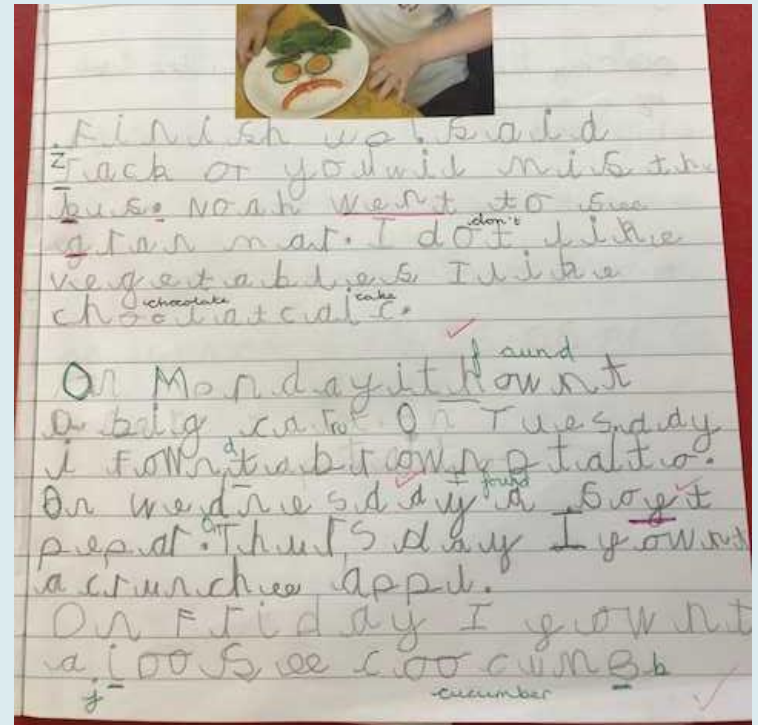 Finish uo! said
z
Jack or you wil mis the
bus. Noah went to see
gran mar. I dot like
don't
vegetables I like
chocolate cake
choolat calc.
found
On Monday it fownt
a big carrot On Tuesday
i fownt a brown potato.
d
On wednesday a soft
I found
pepar. Thursday I fownt
a crunchee appl.
On Friday I fownt
a joosee coocumB b
j cucumber